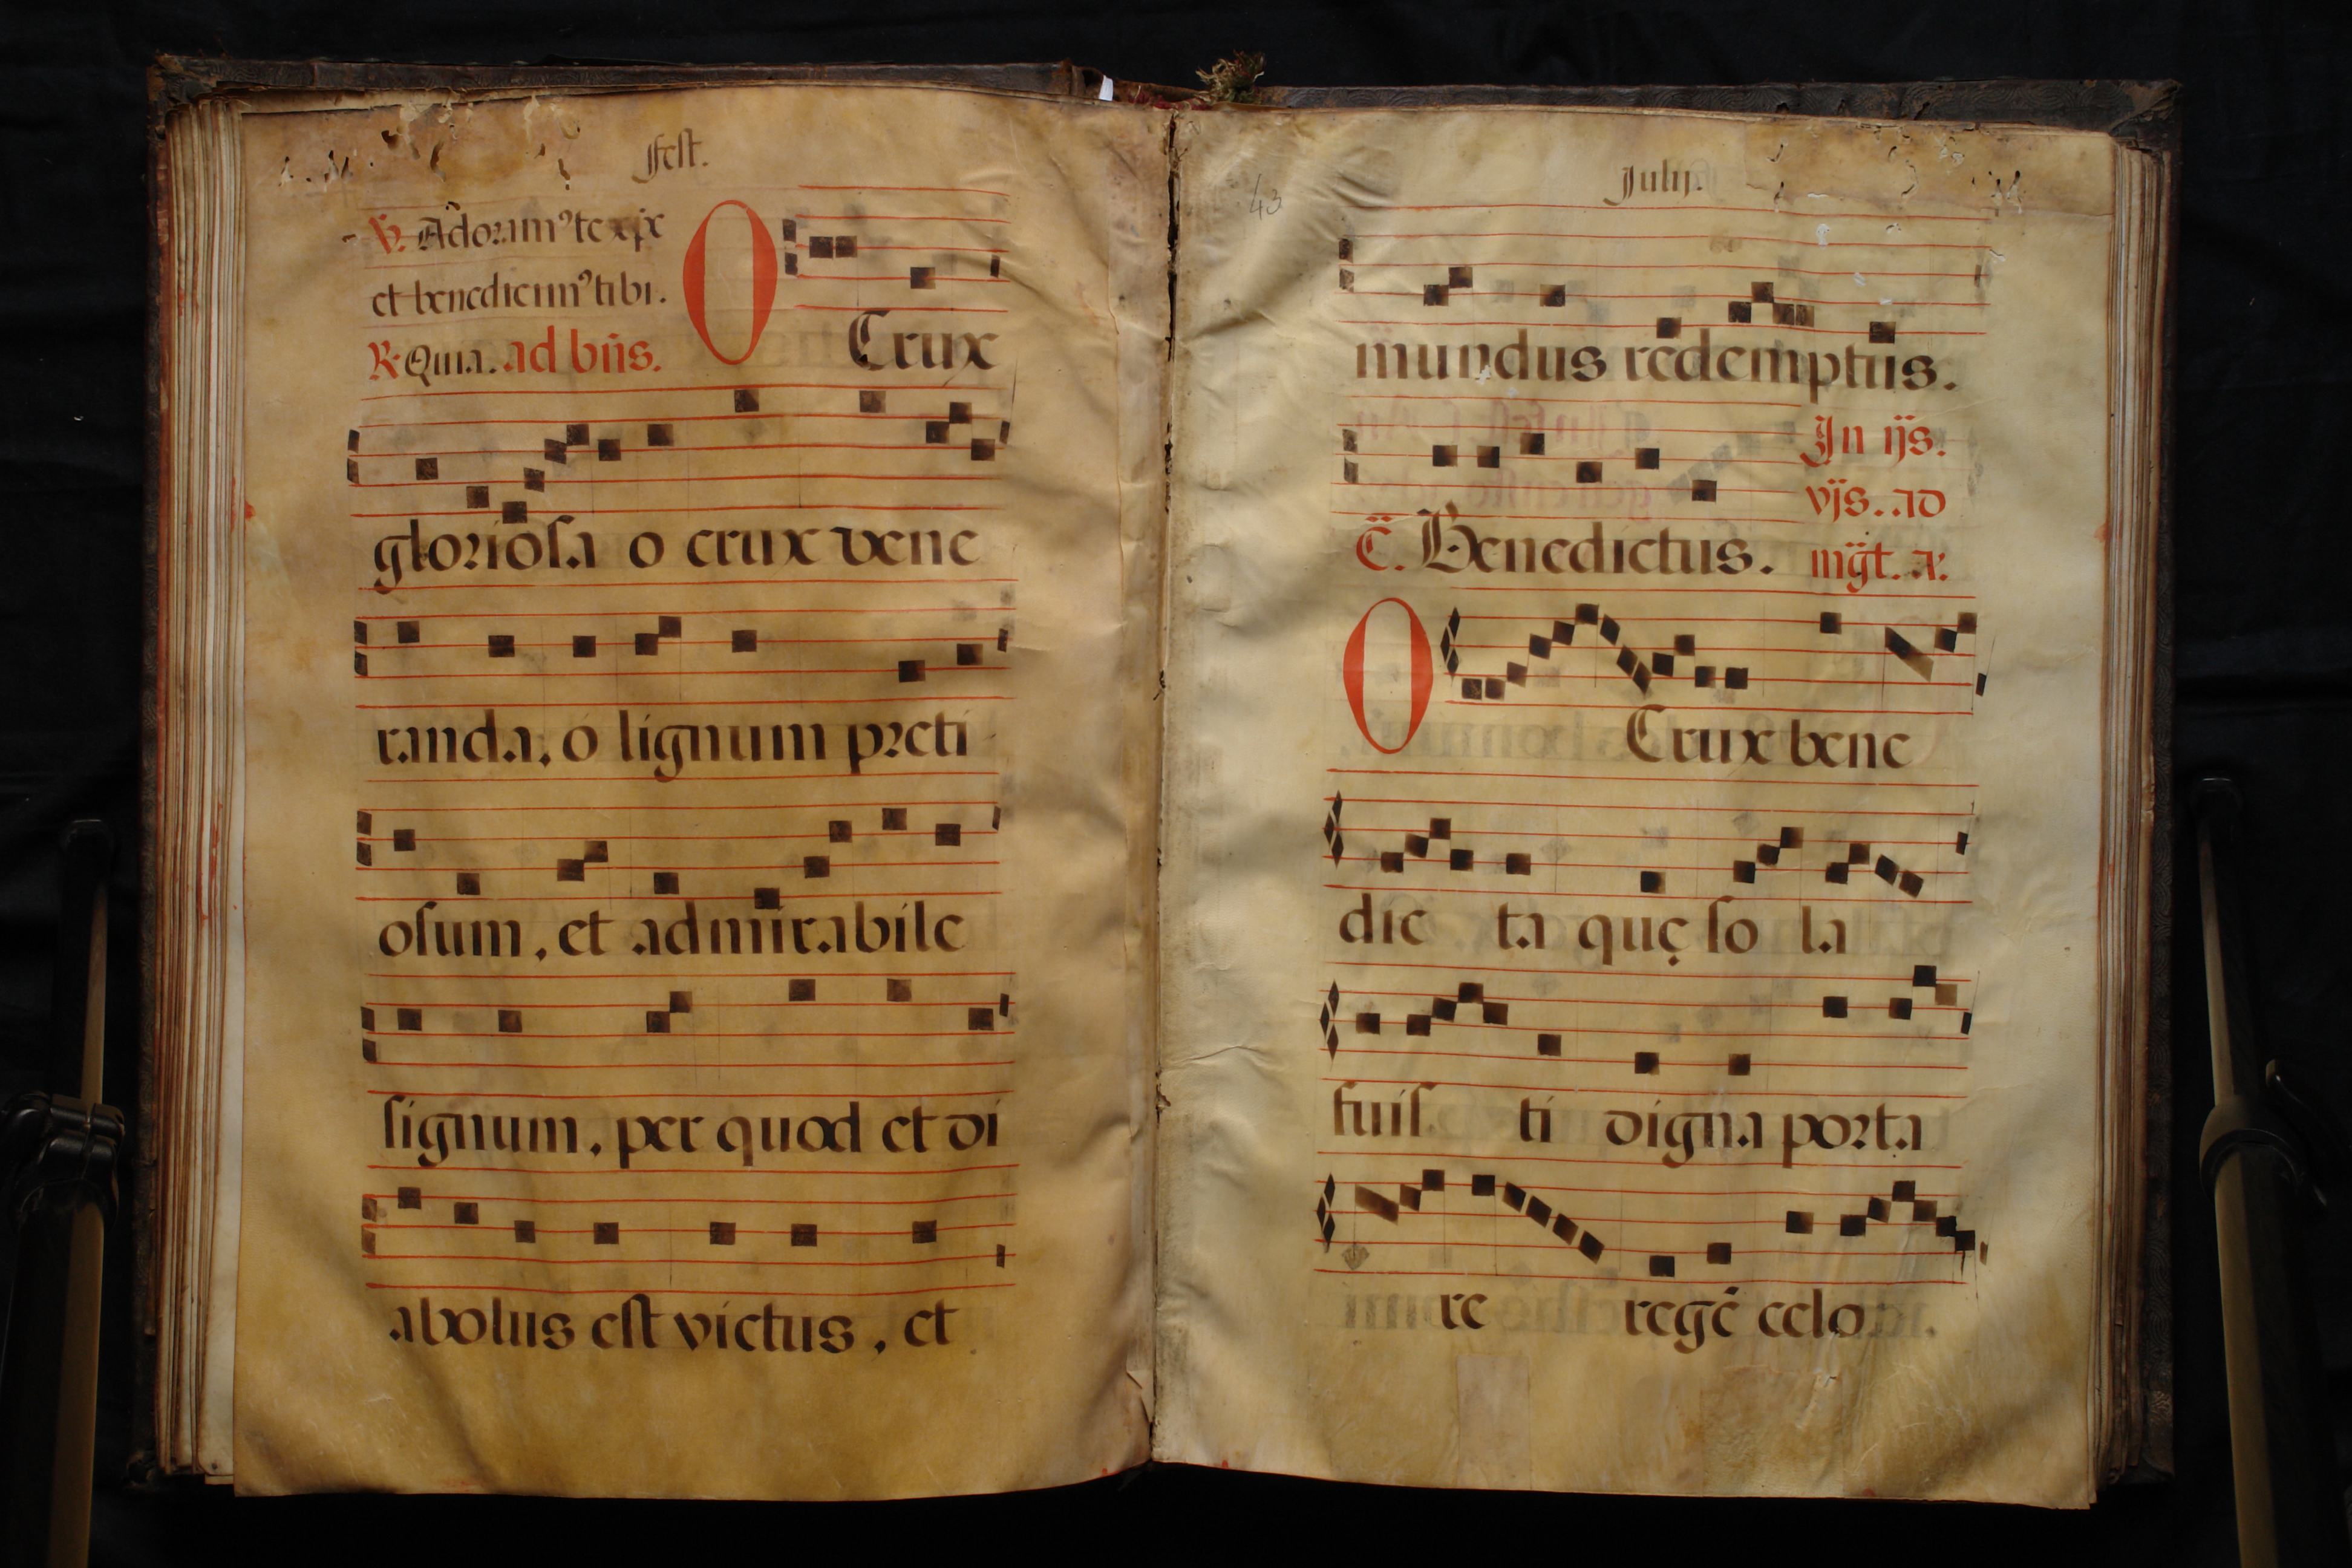 fest.
℣. Adoramꝰ te xp̄e
et benedicimꝰ tibi.
℟. Quia. ad bn̄s.
O Crux
gloriosa o crux vene
randa, o lignum preti
osum, et admirabile
signum, per quod et di
abolus est victus, et
43
Julij.
mundus redemptus.
In ijs.
vjs. ad
C̄. Benedictus. mḡt. a.
O Crux bene
dic ta quę so la
fuis ti digna porta
re regē celo